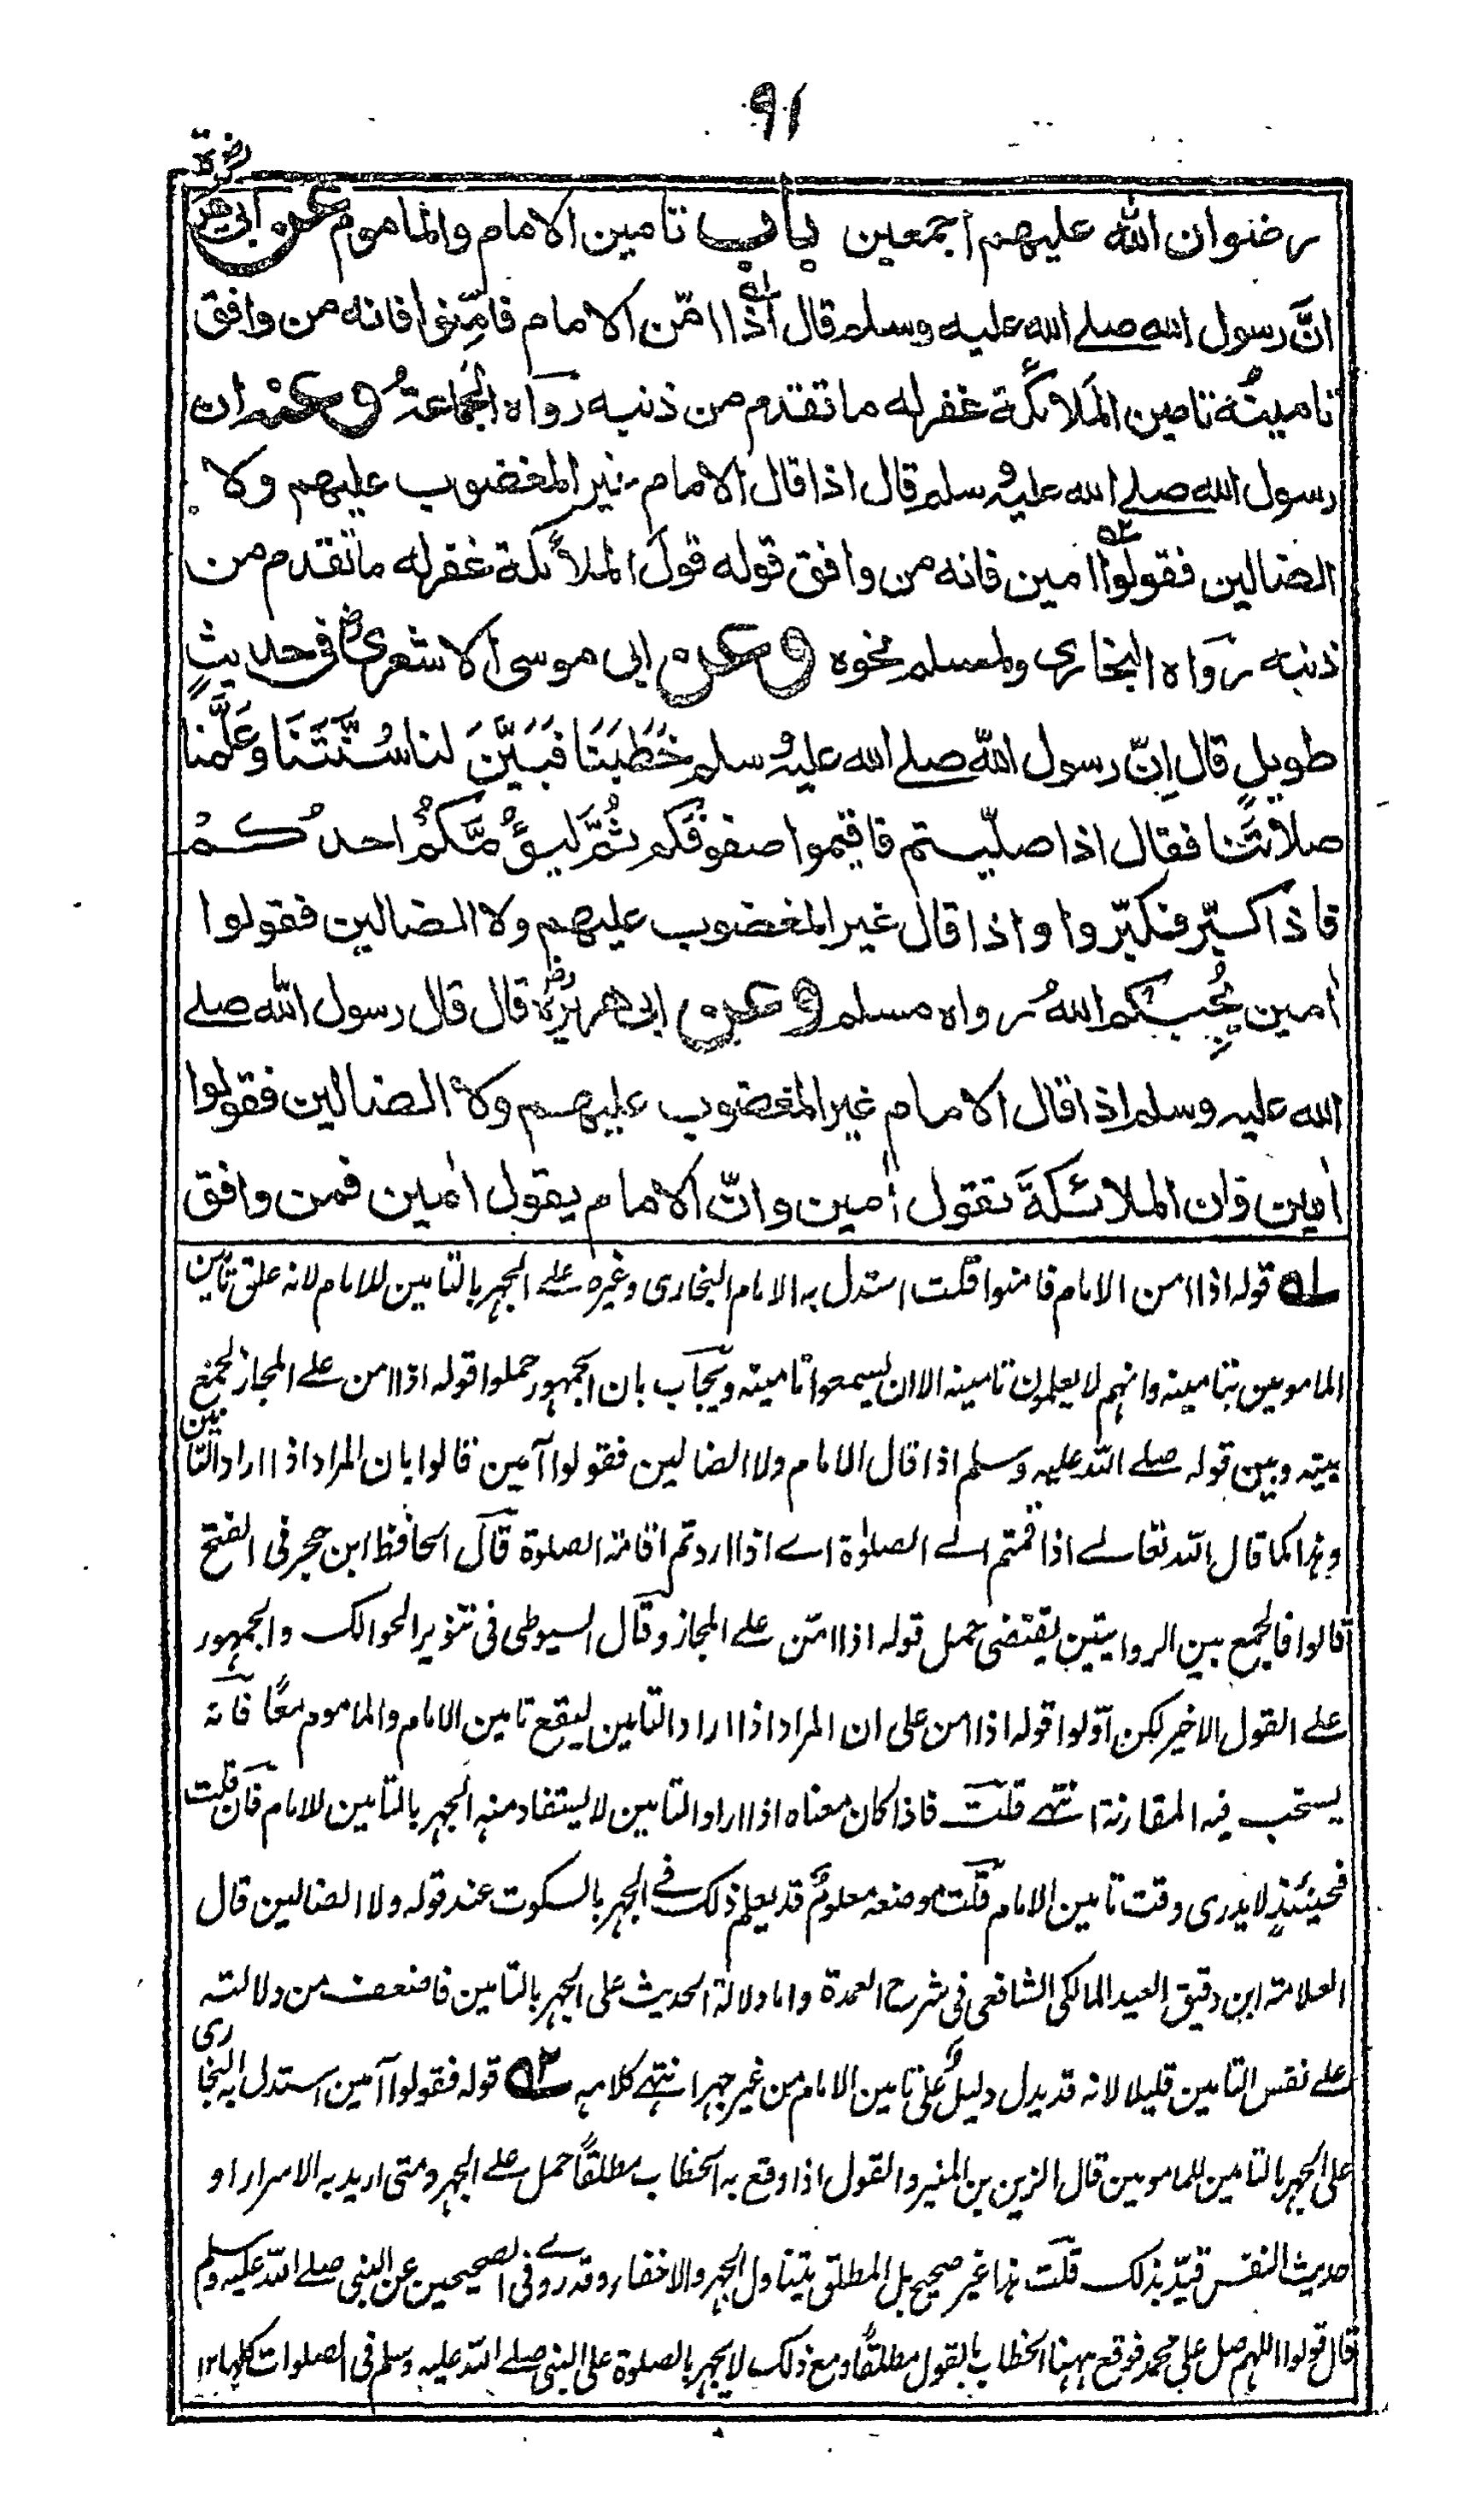 ٩١
رضوان الله عليهم اجمعين باب تامين الامام والماموم عن ابى هريرة رض
انَّ رسول الله صلى الله عليه وسلم قال اذا امّن الامام فامِّنوا فانه من وافق
تامينُه تامين الملائكة غفر له ما تقدم من ذنبه رواه الجماعةُ وعنه ان
رسول الله صلى الله عليه وسلم قال اذا قال الامام غير المغضوب عليهم ولا
الضالين فقولوا امين فانه من وافق قوله قول الملائكة غفر له ما تقدم من
ذنبه رواه البخارى ولمسلم نحوه وعن ابى موسى الاشعرى رض فى حديثٍ
طويلٍ قال اِنّ رسول الله صلى الله عليه وسلم خَطَبَنَا فَبَيَّنَ لنا سُنَّتَنَا وعَلَّمنا
صلاتَنا فقال اذا صلّيتم فاقيموا صفوفكم ثُمَّ ليؤُمَّكُمْ احدُكُمْ
فاذا كبّر فكبّروا واذا قال غير المغضوب عليهم ولا الضالين فقولوا
اٰمين يُجِبْكم اللهُ رواه مسلم وعن ابى هريرة رض قال قال رسول الله صلى
الله عليه وسلم اذا قال الامام غير المغضوب عليهم ولا الضالين فقولوا
اٰمين فان الملائكةَ تقول اٰمين وانّ الامام يقول اٰمين فمن وافق
له قوله اذا امن الامام فامنوا قلت استدل به الامام البخارى وغيره على الجهر بالتامين للامام لانه علق تامين
المامومين بتامينه وانهم لا يعلمون تامينه الا ان يسمعوا تامينه ويجاب بان الجمهور حملوا قوله اذا امن على المجاز لجمع
بينه وبين قوله صلى الله عليه وسلم اذا قال الامام ولا الضالين فقولوا آمين قالوا بان المراد اذا اراد التامين
وهذا كما قال الله تعالى اذا قمتم الى الصلوٰة اى اذا اردتم اقامة الصلوة قال الحافظ ابن حجر فى الفتح
قالوا فالجمع بين الروايتين يقتضى حمل قوله اذا امّن على المجاز وقال السيوطى فى تنوير الحوالك والجمهور
على القول الاخير لكن اوّلوا قوله اذا امن على ان المراد اذا اراد التامين ليقع تامين الامام والماموم معًا فانه
يستحب فيه المقارنة انتهى قلت فاذا كان معناه اذا اراد التامين لا يستفاد منه الجهر بالتامين للامام فان قلت
فحينئذٍ لا يدرى وقت تامين الامام قلت موضعه معلومٌ قد يعلم ذلك فى الجهر بالسكوت عند قوله ولا الضالين قال
العلامة ابن دقيق العيد المالكى الشافعى فى شرح العمدة واما دلالة الحديث على الجهر بالتامين فاضعف من دلالته
على نفس التامين قليلا لانه قد يدل دليلٌ على تامين الامام من غير جهر انتهى كلامه ٢ه قوله فقولوا آمين استدل به البخارى
على الجهر بالتامين للمامومين قال الزين بن المنير والقول اذا وقع به الخطاب مطلقاً حمل على الجهر ومتى اريد به الاسرار او
حديث النفس قيّد بذلك قلت هذا غير صحيح بل المطلق يتناول الجهر والاخفاء وقد روى فى الصحيحين عن النبى صلى الله عليه وسلم
قال قولوا اللهم صل على محمد فوقع ههنا الخطاب بالقول مطلقًا ومع ذلك لا يجهر بالصلوة على النبى صلى الله عليه وسلم فى الصلوات كلها ١٢